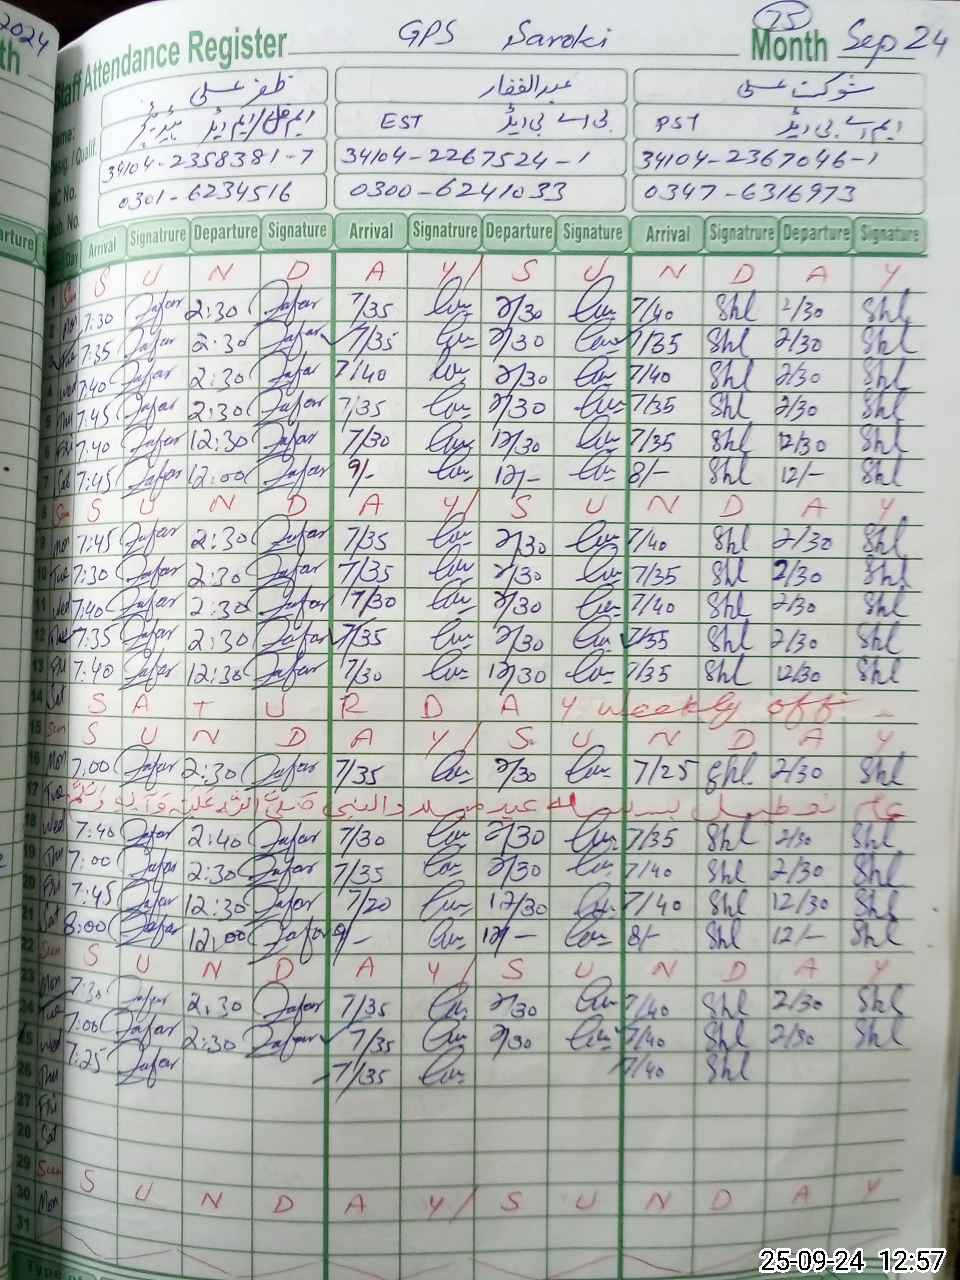 2024
Staff Attendance Register GPS Saroki 75 Month Sep 24
ظفر علی عبدالغفار شوکت علی
EST بی اے بی ایڈ PST ایم اے بی ایڈ
34104-2358381-7 34104-2267524-1 34104-2367046-1
0301-6234516 0300-6241033 0347-6316973
Arrival Signatrure Departure Signature Arrival Signatrure Departure Signature Arrival Signatrure Departure Signature
S U N D A Y/ S U N D A Y
7:30 Zafar 2:30 Zafar 7/35 2/30 7/40 Shl 2/30 Shl
7:35 Zafar 2:30 Zafar 7/35 2/30 7/35 Shl 2/30 Shl
7:40 Zafar 2:30 Zafar 7/40 2/30 7/40 Shl 2/30 Shl
7:45 Zafar 2:30 Zafar 7/35 2/30 7/35 Shl 2/30 Shl
7:40 Zafar 12:30 Zafar 7/30 12/30 7/35 Shl 12/30 Shl
7:45 Zafar 12:00 Zafar 9/- 12/- 8/- Shl 12/- Shl
S U N D A Y/ S U N D A Y
7:45 Zafar 2:30 Zafar 7/35 2/30 7/40 Shl 2/30 Shl
7:30 Zafar 2:30 Zafar 7/35 2/30 7/35 Shl 2/30 Shl
7:40 Zafar 2:30 Zafar 7/30 2/30 7/40 Shl 2/30 Shl
7:35 Zafar 2:30 Zafar 7/35 2/30 7/35 Shl 2/30 Shl
7:40 Zafar 12:30 Zafar 7/30 12/30 7/35 Shl 12/30 Shl
14 Sat S A T U R D A Y weekly off
15 Sun S U N D A Y/ S U N D A Y
16 Mon 7:00 Zafar 2:30 Zafar 7/35 2/30 7/25 Shl 2/30 Shl
17 Tue عام تعطیل بسلسلہ عید میلاد النبی
18 Wed 7:40 Zafar 2:40 Zafar 7/30 2/30 7/35 Shl 2/30 Shl
19 Thu 7:00 Zafar 2:30 Zafar 7/35 2/30 7/40 Shl 2/30 Shl
20 Fri 7:45 Zafar 12:30 Zafar 7/20 12/30 7/40 Shl 12/30 Shl
21 Sat 8:00 Zafar 12:00 Zafar 9/- 12/- 8/- Shl 12/- Shl
22 Sun S U N D A Y/ S U N D A Y
23 Mon 7:30 Zafar 2:30 Zafar 7/35 2/30 7/40 Shl 2/30 Shl
24 Tue 7:00 Zafar 2:30 Zafar 7/35 2/30 7/40 Shl 2/30 Shl
25 Wed 7:25 Zafar 7/35 7/40 Shl
26 Thu
27 Fri
28 Sat
29 Sun S U N D A Y/ S U N D A Y
30 Mon
31
25-09-24 12:57